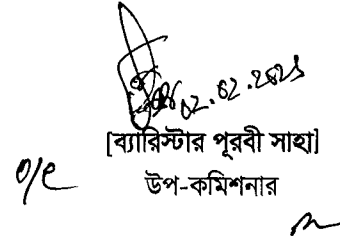 02.02.2025
[ব্যারিস্টার পূরবী সাহা]
o/c উপ-কমিশনার